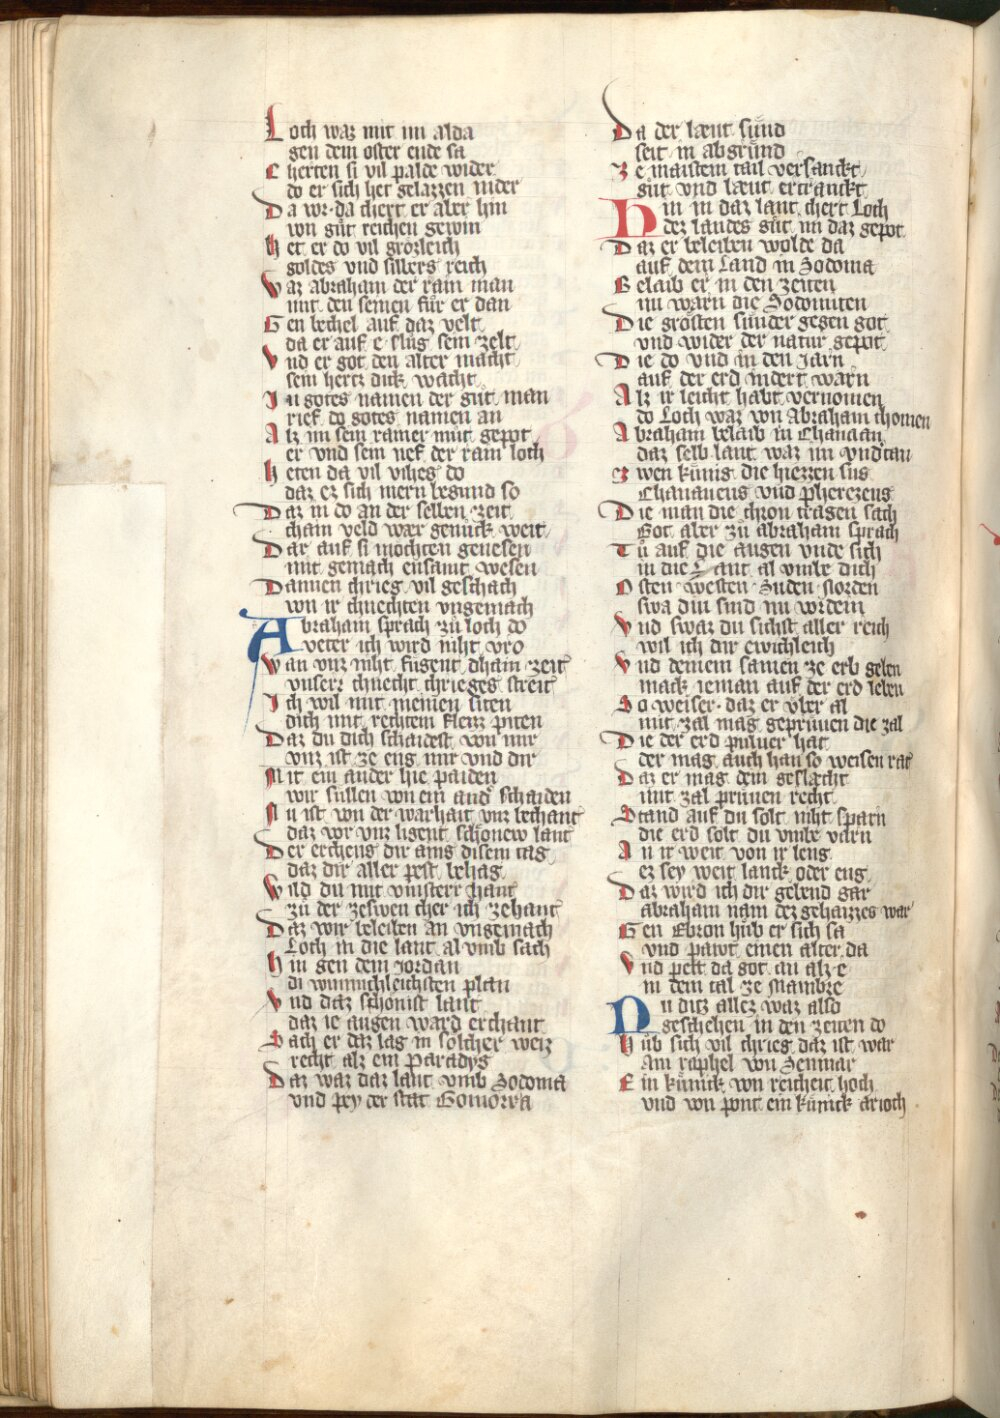 Loch waz mit im alda
gen dem oster ende sa
Cherten si vil palde wider
do er sich het gelazzen nider
Da vor da chert er aber hin
von gůt reichen gewin
Het er do vil grözleich
goldes vnd silbers reich
Waz abraham der rain man
mit den seinen fůr er dan
Gen bethel auf daz velt
da er auf e slůg sein zelt
Vnd er got den alter macht
sein hertz dick wacht
In gotes namen der gůt man
rief do gotes namen an
Alz im sein rainer můt gepot
er vnd sein nef der rain loth
Heten da vil vihes do
daz ez sich mern begund so
Daz in do an der selben zeit
cham veld waz genůck weit
Dar auf si mochten genesen
mit gemach ensamt wesen
Dannen chrieg vil geschach
von ir chnechten vngemach
Abraham sprach zů loch do
veter ich wird niht vro
Wan vnz niht fugent dhain zeit
vnserr chnecht chrieges streit
Ich wil mit meinen siten
dich mit rechtem fleizz piten
Daz du dich schaidest von mir
vnz ist ze eng mir vnd dir
Mit ein ander hie paiden
wir sullen von ein and schaiden
Nu ist von der warhait vnz bechant
daz vor vnz ligent schönew lant
Der erchens dir ains disem tag
daz dir aller pest behag
Wild du mit vinsterr hant
zů der zeswen cher ich zehant
Daz wir beleiben an vngemach
Loch in die lant al vmb sach
Hin gen dem Jordan
di wunnichleichsten plan
Vnd daz schonist lant
daz ie augen ward erchant
Sach er daz lag in solcher weiz
recht alz ein paradys
Daz waz daz lant vmb Sodoma
vnd pey der stat Gomorra
Da der læut sůnd
seit in abgrůnd
Ze maistem tail versanckt
gůt vnd læut ertranckt
Hin in daz lant chert Loch
dez landes gůt im daz gepot
Daz er beleiben wolde da
auf dem Land in Sodoma
Belaib er in den zeiten
nu warn die Sodomiten
Die grösten sůnder gegen got
vnd wider der natur gepot
Die do vnd in den Jarn
auf der erd indert warn
Alz ir leicht habt vernomen
do Loch waz von Abraham chomen
Abraham belaib in Chanaan
daz selb lant waz im vndtan
Zwen kůnig die hiezzen sus
Chananeus vnd pherezeus
Die man die chron tragen sach
Got aber zů abraham sprach
Tů auf die augen vnde sich
in die Lant al vmbe dich
Osten Westen Suden Norden
swa dir sind nu worden
Vnd swaz du sichst aller reich
wil ich dir ewichleich
Vnd deinem samen ze erb geben
mack ieman auf der erd leben
So weiser daz er vber al
mit zal mag geprůuen die zal
Die der erd puluer hat
der mag auch han so weisen rat
Daz er mag dem geslæcht
mit zal průuen recht
Stand auf du solt niht sparn
die erd solt du vmbe varn
An ir weit von ir leng
ez sey weit lanck oder eng
Daz wird ich dir gebend gar
abraham nam dez gehaizzes war
Gen Ebron hůb er sich sa
vnd pawt einen alter da
Vnd pett da got an alz e
in dem tal ze Mambre
Nu ditz allez waz also
geschehen in den zeiten do
Hůb sich vil chrieg daz ist war
Am raphel von Sennar
Ein kůnick von reicheit hoch
vnd von pont ein kůnick arioch